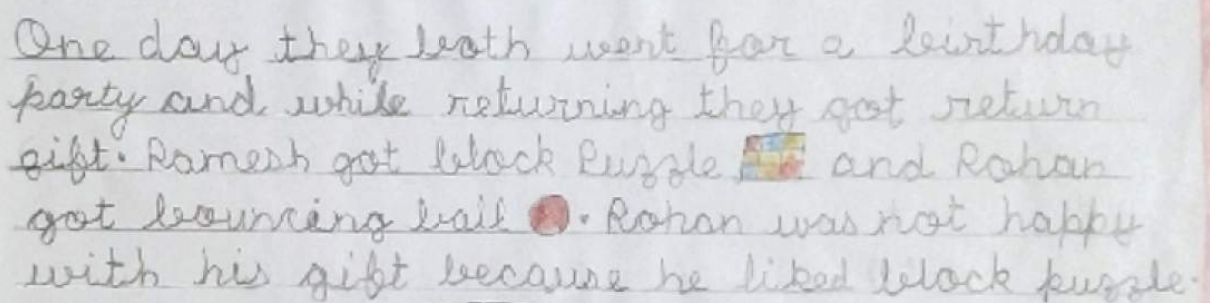 One day they both went for a birthday
party and while returning they got return
gift. Ramesh got block Puzzle and Rohan
got bouncing ball. Rohan was not happy
with his gift because he liked block puzzle.